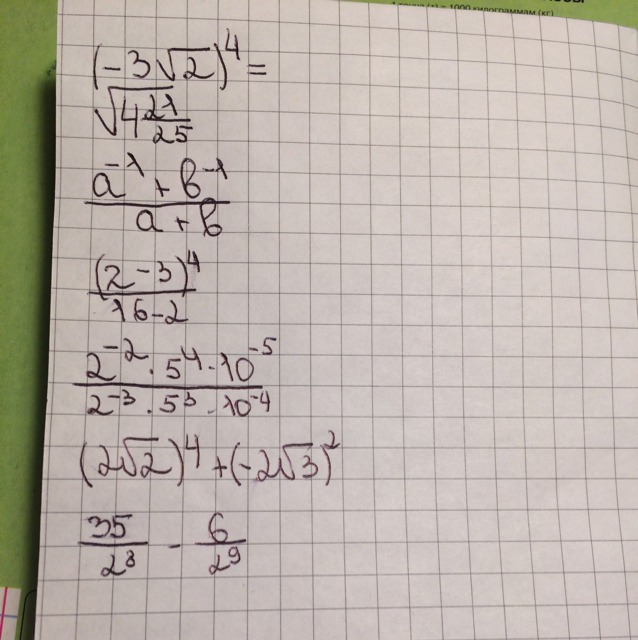 1 тонна (т) = 1000 килограммам (кг)
(-3√2)^4 =
√(4 21/25)
(a^-1 + b^-1)/(a + b)
(2-3)^4/(16-2)
(2^-2 · 5^4 · 10^-5)/(2^-3 · 5^3 · 10^-4)
(2√2)^4 + (-2√3)^2
35/2^8 - 6/2^9